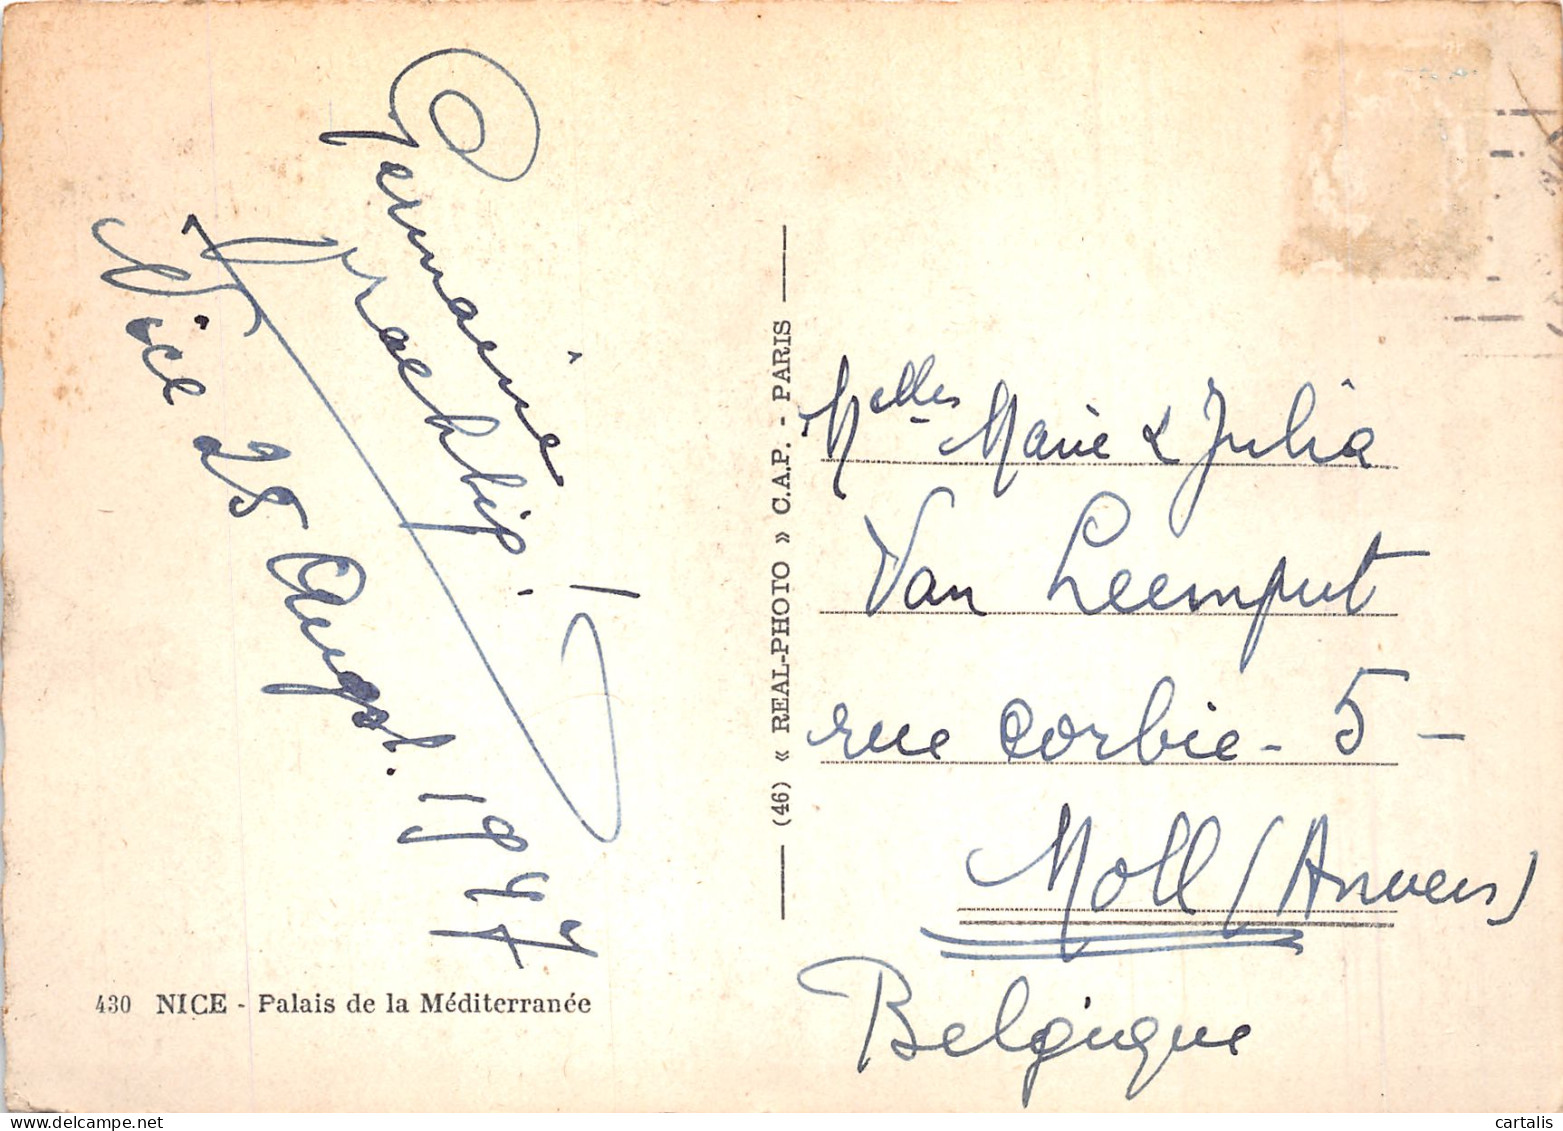 Germaine
Nice 25 August. 1947
430 NICE - Palais de la Méditerranée
(46) « REAL-PHOTO » C.A.P. - PARIS
Melles Marie & Julia
Van Leemput
rue Corbie - 5 -
Moll (Anvers)
Belgique
www.cartalis.com
cartalis